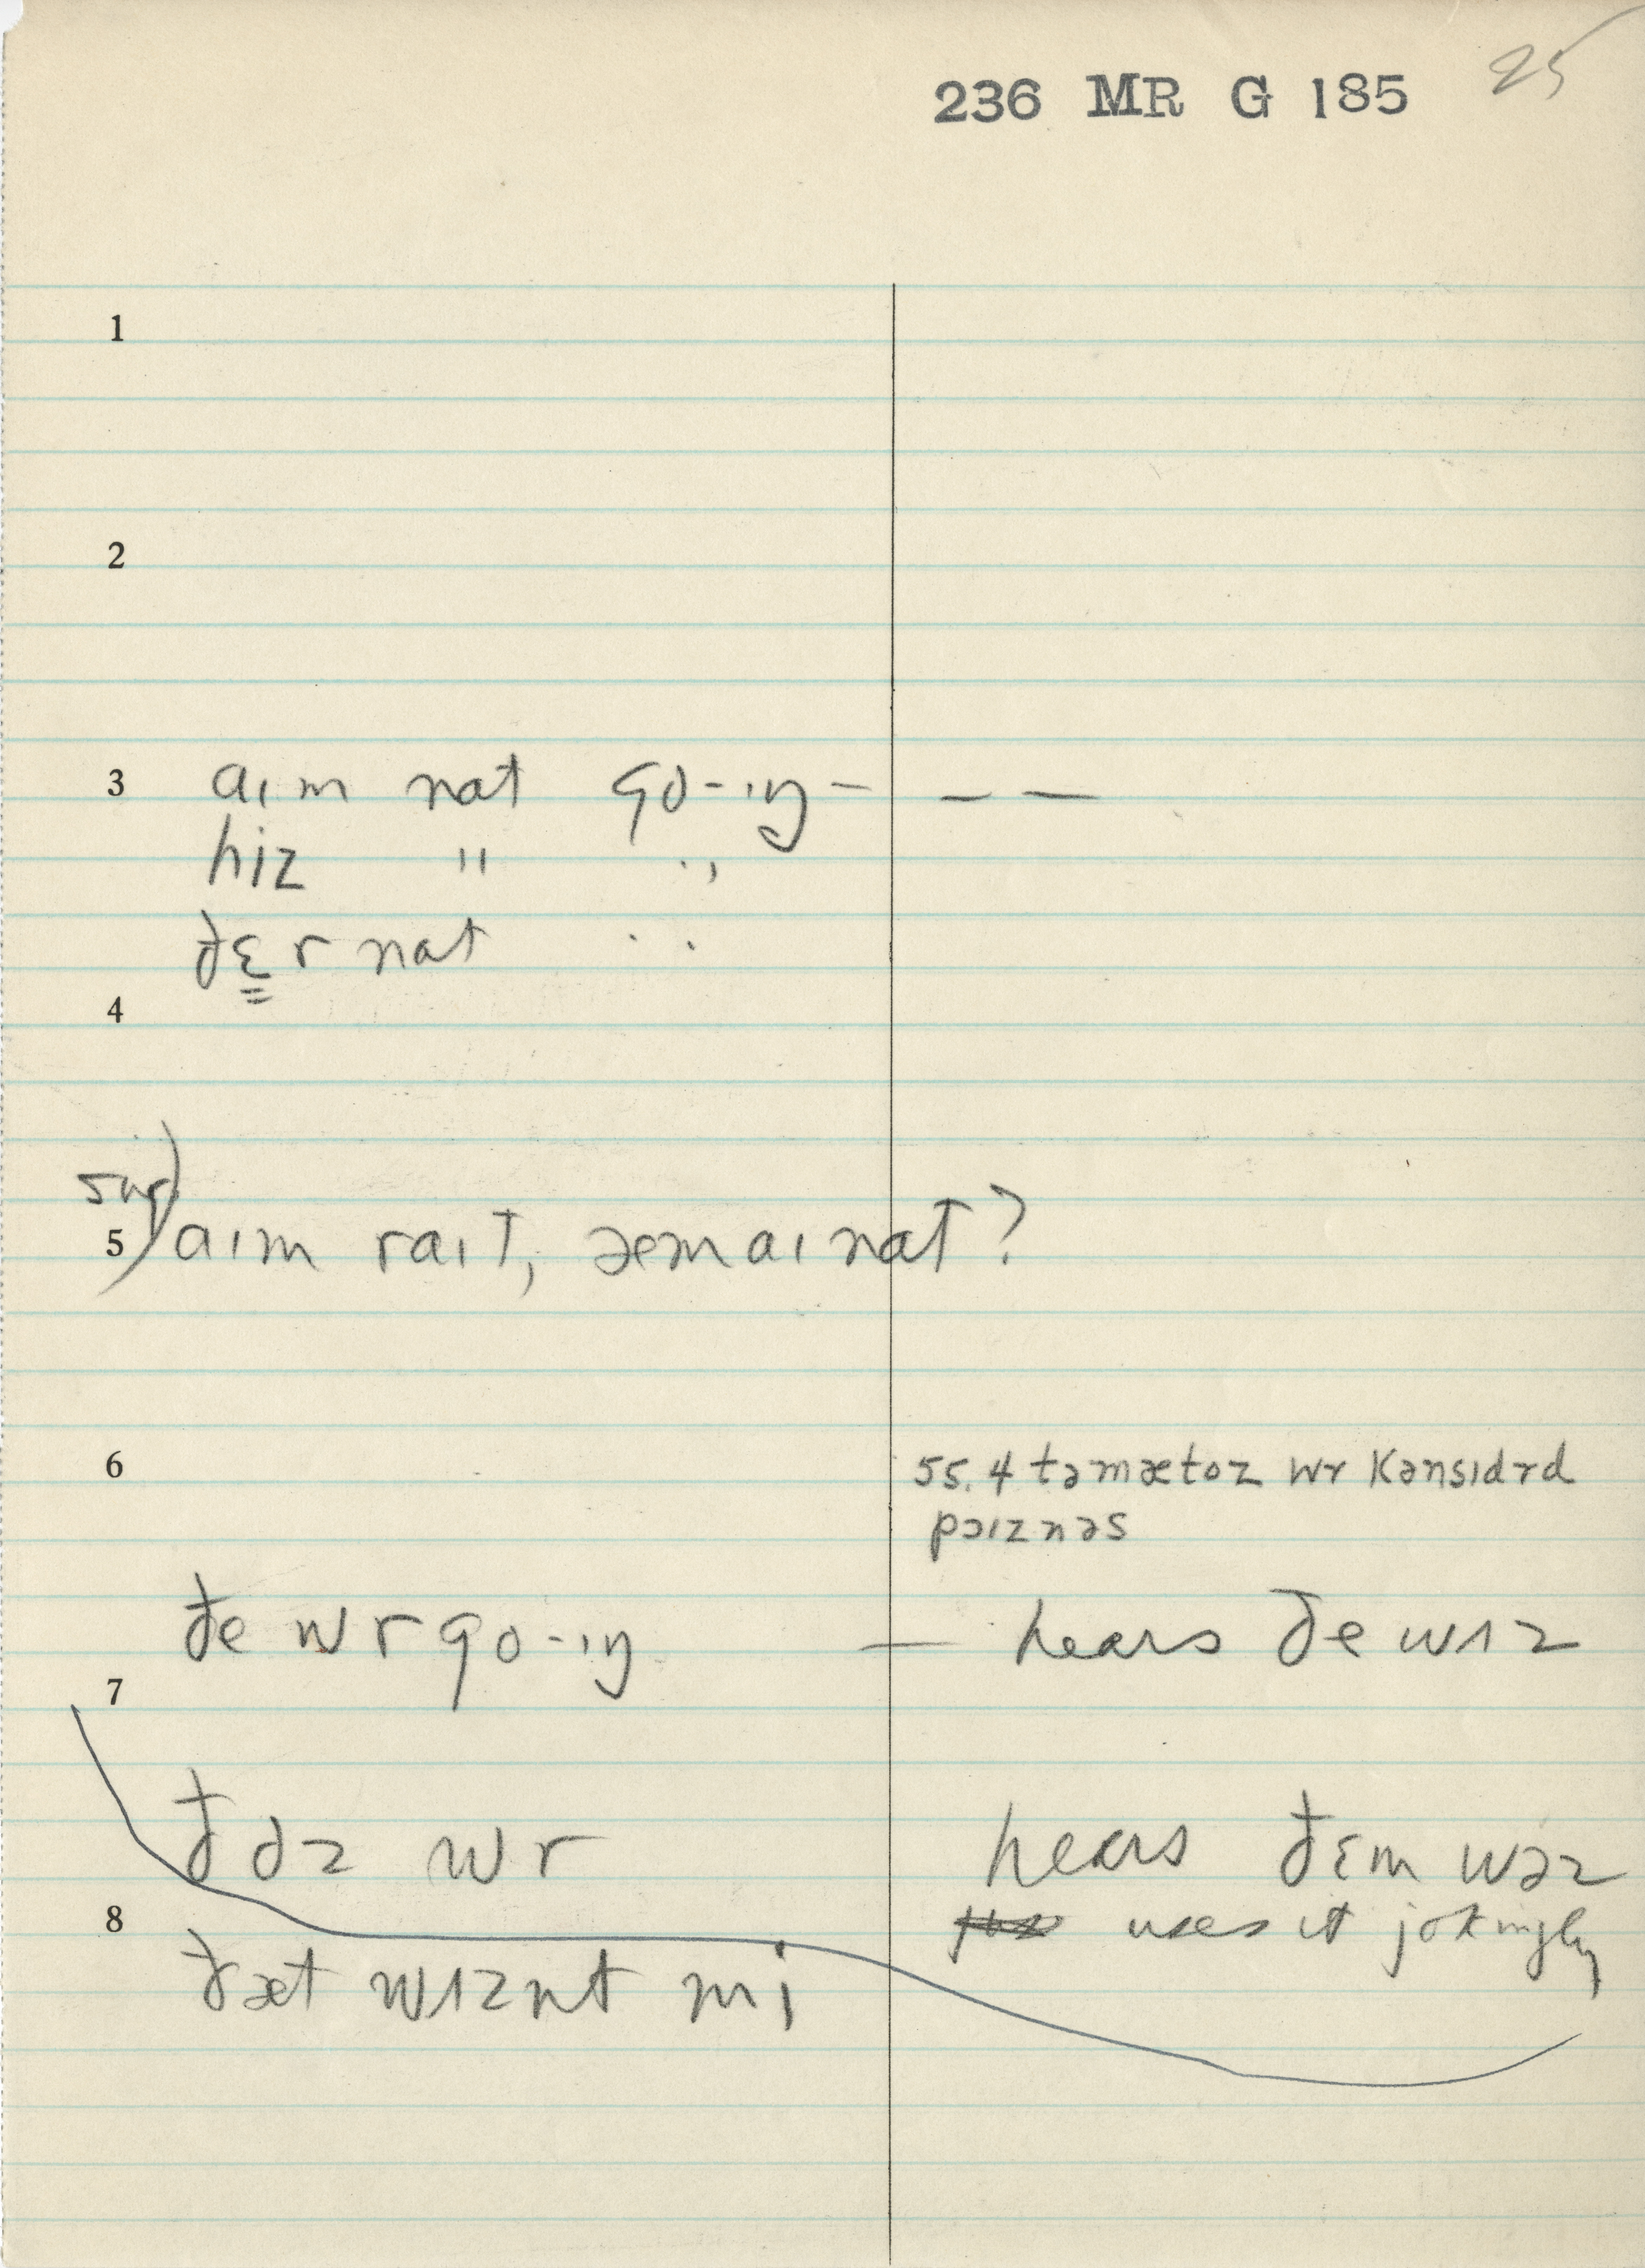 236 MR G 185 25
1
2
3 aɪm nat go-ɪŋ — — —
hiz " "
ðɛr nat "
4
sug)
5 aɪm raɪt, æm aɪ nat?
6 55.4 təmætoz wr kənsɪdrd
pɔɪznəs
ðe wr go-ɪŋ — hears ðe wɪz
7
ðoz wr hears ðɛm wəz
8 uses it jokingly
ðæt wɪznt mi